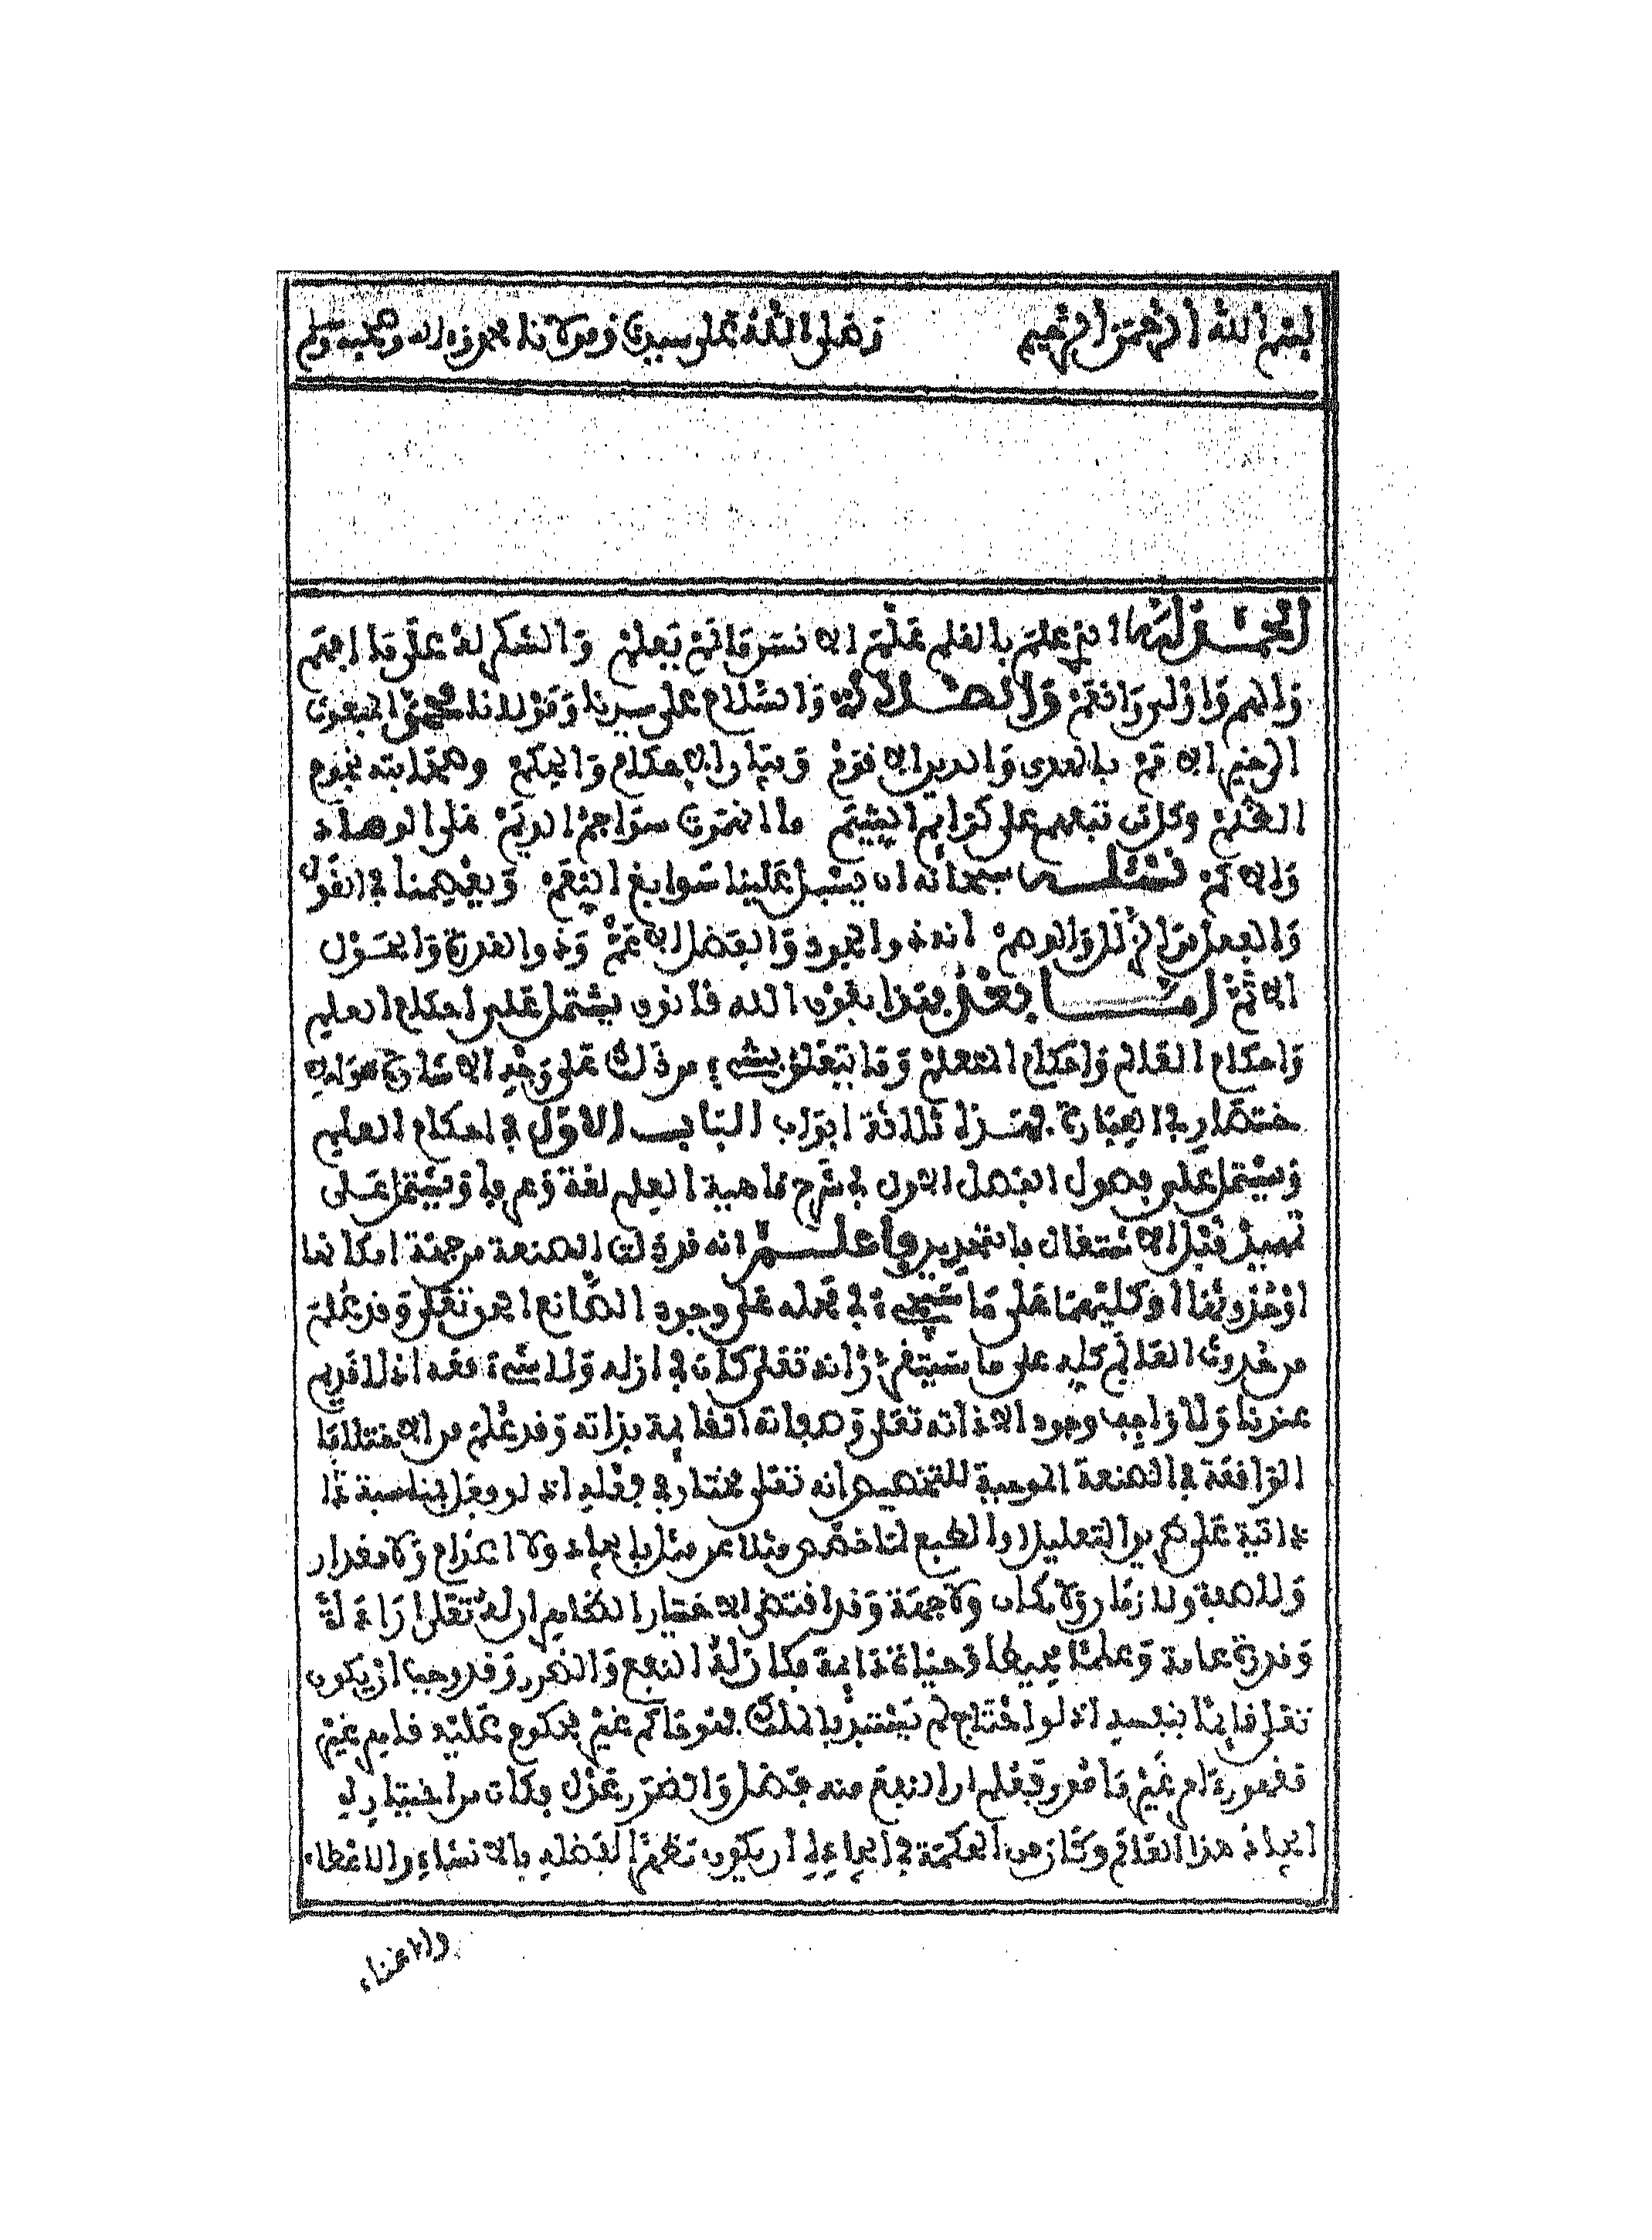 بسم الله الرحمن الرحيم وصلى الله على سيدنا ومولانا محمد وءاله وصحبه وسلم
الحمد لله الذي علم بالقلم علم الانسان ما لم يعلم والشكر له على ما افهم
والهم واولى وانعم والصلاة والسلام على سيدنا ومولانا محمد المبعوث
الى خير الامم بالهدى والدين الاقوم وبيان الاحكام والحكم وصحابته نجوم
الظلم وكل من تبعهم على كرايم الشيم ما انهمرت سواجم الديم على الوهاد
والاكم نسئله سبحانه ان يسبل علينا سوابغ النعم ويعصمنا في القول
والفعل من الزلل والوهم انه ذو الجود والفضل الاعم وذو القدرة والحول
الاتم اما بعد فهذا بعون الله قانون يشتمل على احكام العلم
واحكام العالم واحكام المتعلم وما يتعلق بشيء من ذلك على وجه الاشارة والا
ختصار في العبارة فهذه ثلاثة ابواب الباب الاول في احكام العلم
ويشتمل على فصول الفصل الاول في شرح ماهية العلم لغة وعرفا ويشتمل على
تمهيد قبل الاشتغال بالتحديد واعلم انه قد دلت الصنعة من جهة امكانها
او حدوثها او كليهما على ما سيجيء في محله على وجود الصانع الحق تعلى وقد علم
من حدوث العالم كله على ما سيتقرر انه تعلى كان في ازله ولا شيء معه اذ لا قديم
عندنا ولا واجب وجود الا ذاته تعلى وصفاته القايمة بذاته وقد علم من الاختلافات
الواقعة في الصنعة الموجبة للتخصيص انه تعلى مختار في فعله اذ لو فعل بمناسبة ما
ذاتية على طريق التعليل او الطبع لما خصص مثلا عن مثل بايجاد ولا اعدام ولا مقدار
ولا صفة ولا زمان ولا مكان ولا جهة وقد اقتضى الاختيار التخصيص ان له تعلى ارادة
وقدرة عامة وعلما محيطا وحياة دايمة فكان له النفع والضرر وقد وجب ان يكون
تعلى قايما بنفسه اذ لو احتاج لم يستبد بالملك فهو حاكم غير محكوم عليه قاهر غير
مقهور ءامر غير مامور فعلم ان النفع منه فضل والضرر عدل فكان من اختياره
ايجاد هذا العالم وكان من الحكمة في ايجاده ان يكون مظهرا لفضله بالانشاء والاعطاء
والاغناء